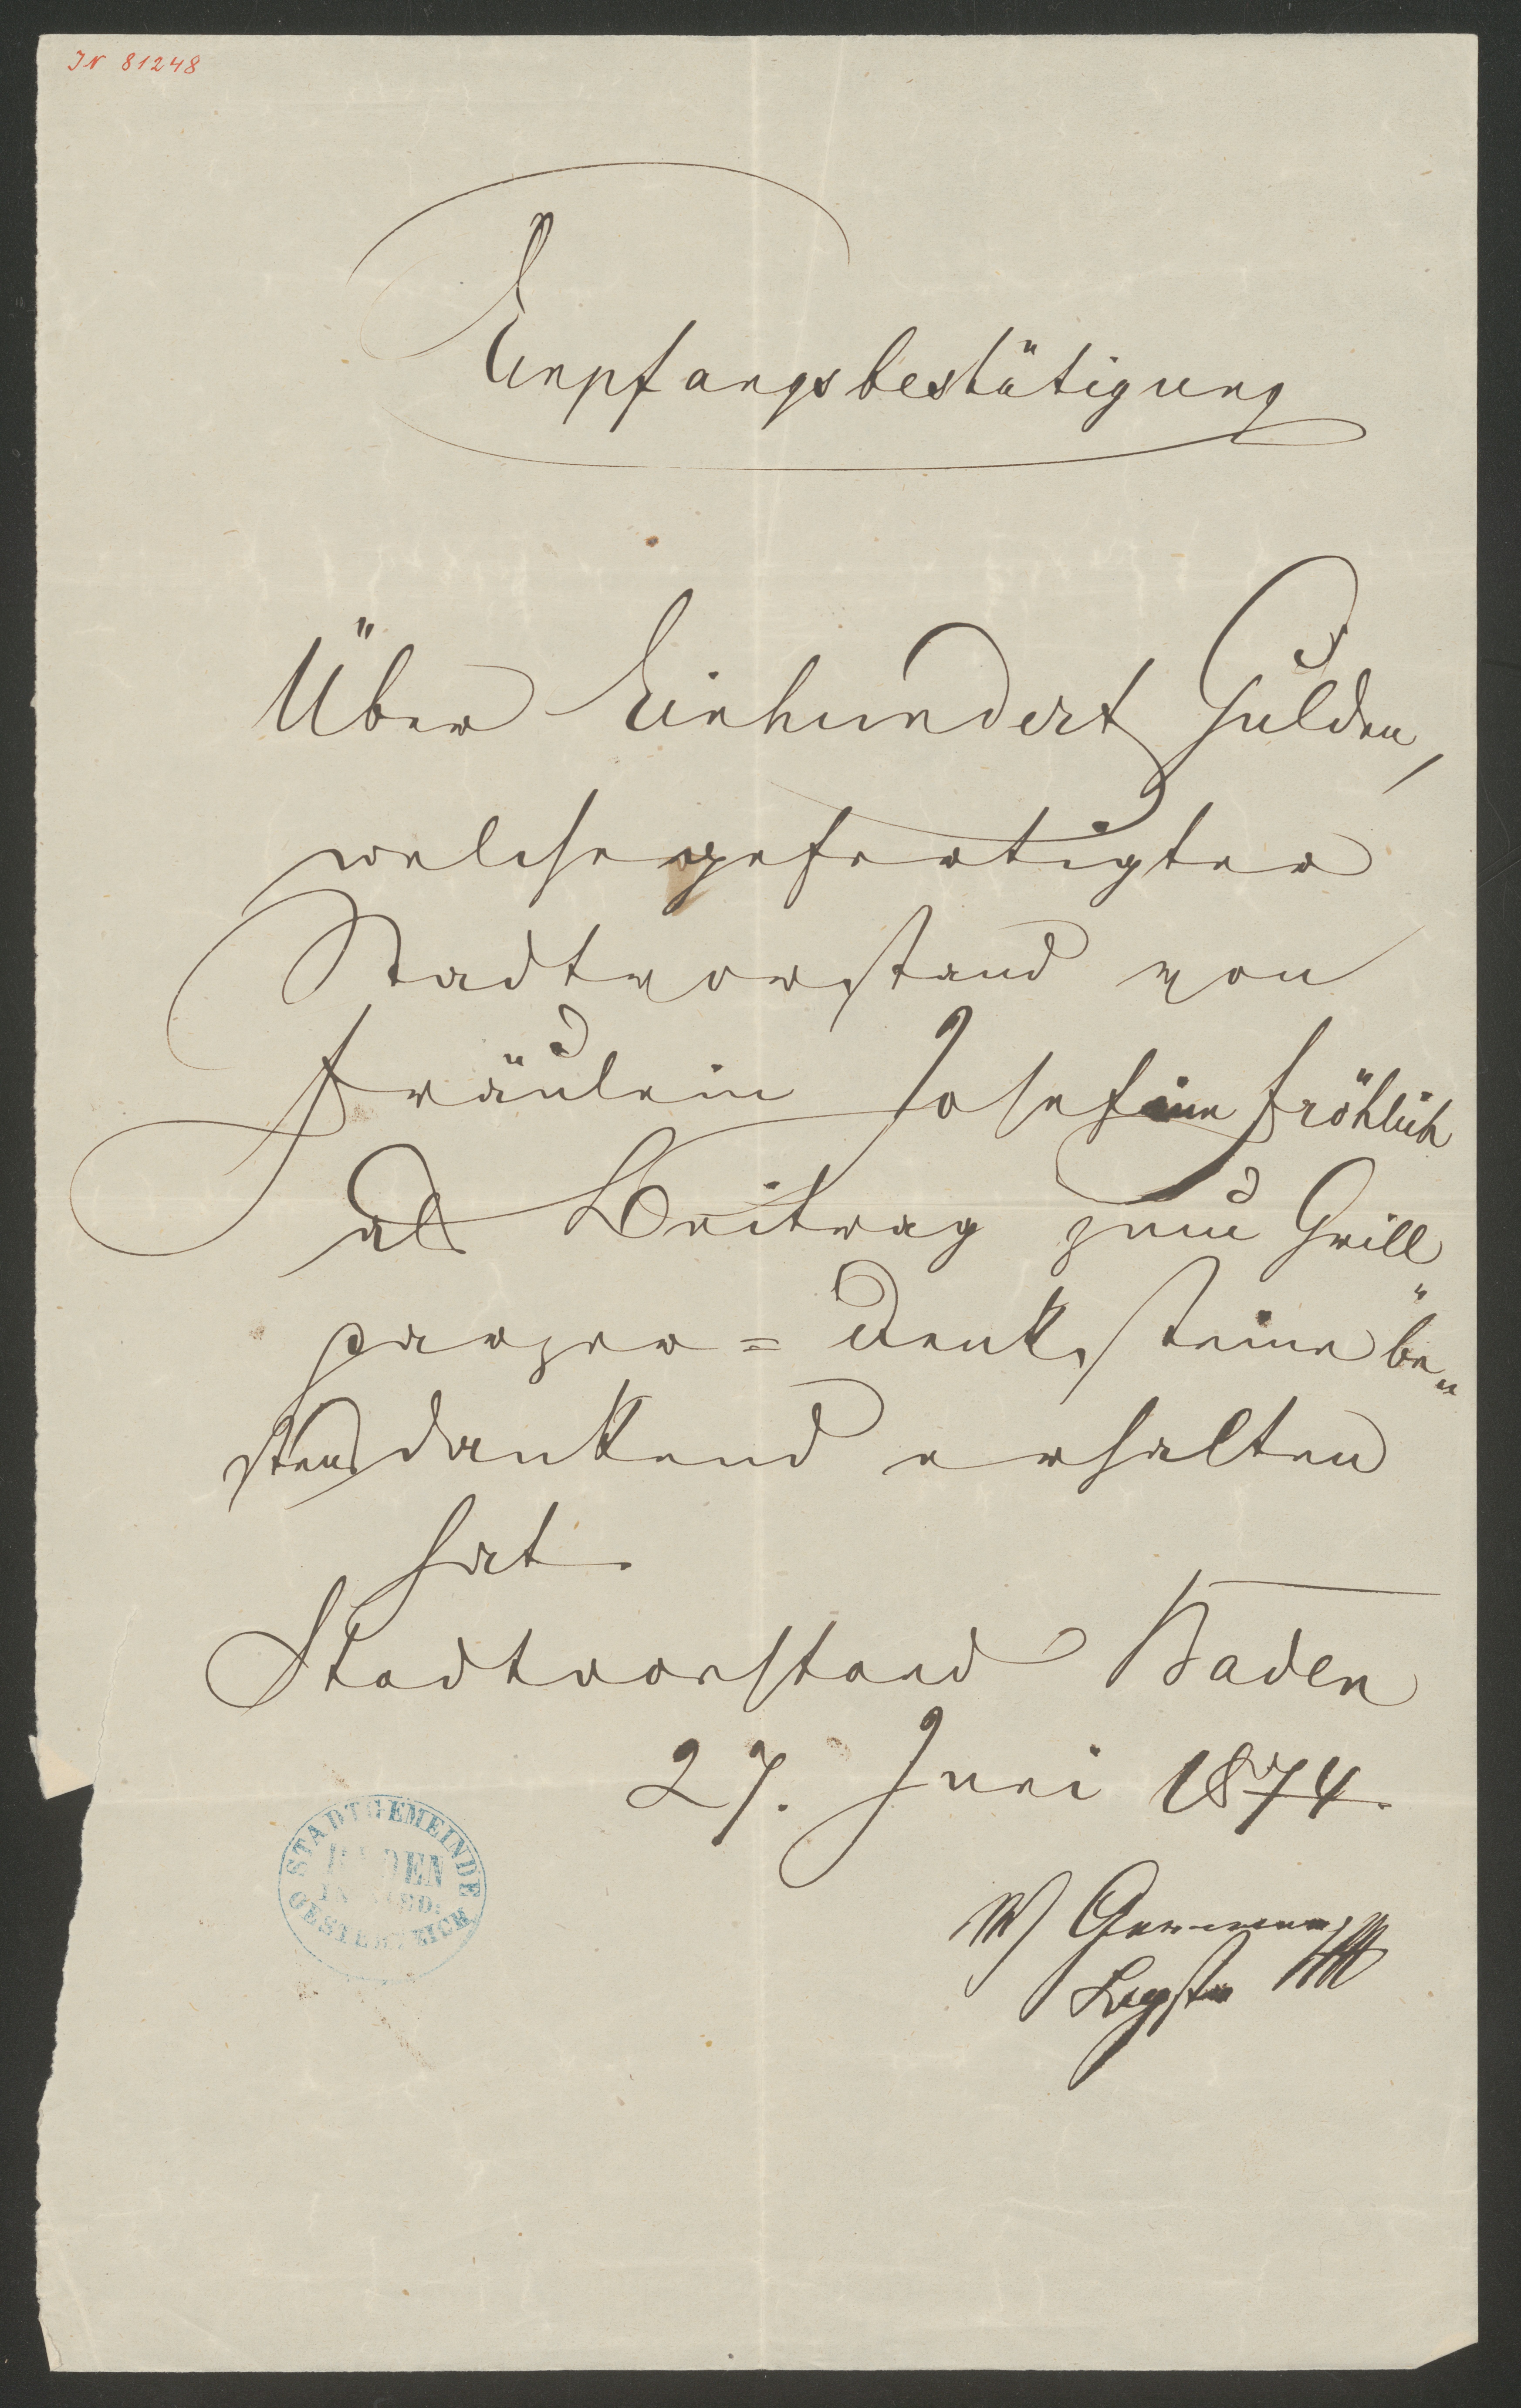 IN 81248
Empfangsbestätigung
Über Einhundert Gulden,
welche gefertigter
Stadtvorstand von
Fräulein Josefine Fröhlich
als Beitrag zum Grill
parzer = Denksteine be„
stens dankend erhalten
hat.
Stadtvorstand Baden
27. Juni 1874.
STADTGEMEINDE
BADEN
OESTERREICH